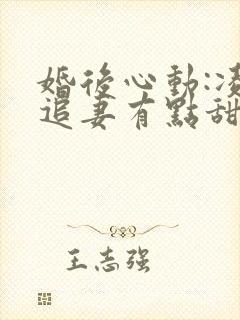 婚後心動:凌
追妻有點甜
王志强